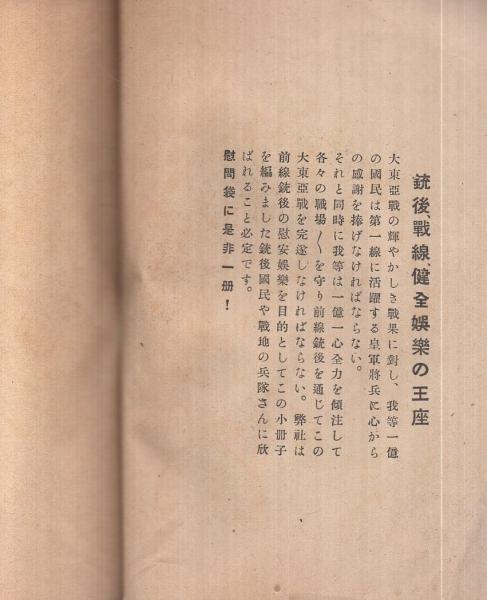 銃後、戰線、健全娯樂の王座
大東亞戰の輝やかしき戰果に對し、我等一億
の國民は第一線に活躍する皇軍將兵に心から
の感謝を捧げなければならない。
それと同時に我等は一億一心全力を傾注して
各々の職場〳〵を守り前線銃後を通じてこの
大東亞戰を完遂しなければならない。弊社は
前線銃後の慰安娯樂を目的としてこの小冊子
を編みました銃後國民や戰地の兵隊さんに欣
ばれること必定です。
慰問袋に是非一册！